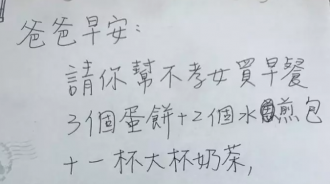 爸爸早安:
請你幫不孝女買早餐
3個蛋餅+2個水煎包
+一杯大杯奶茶,